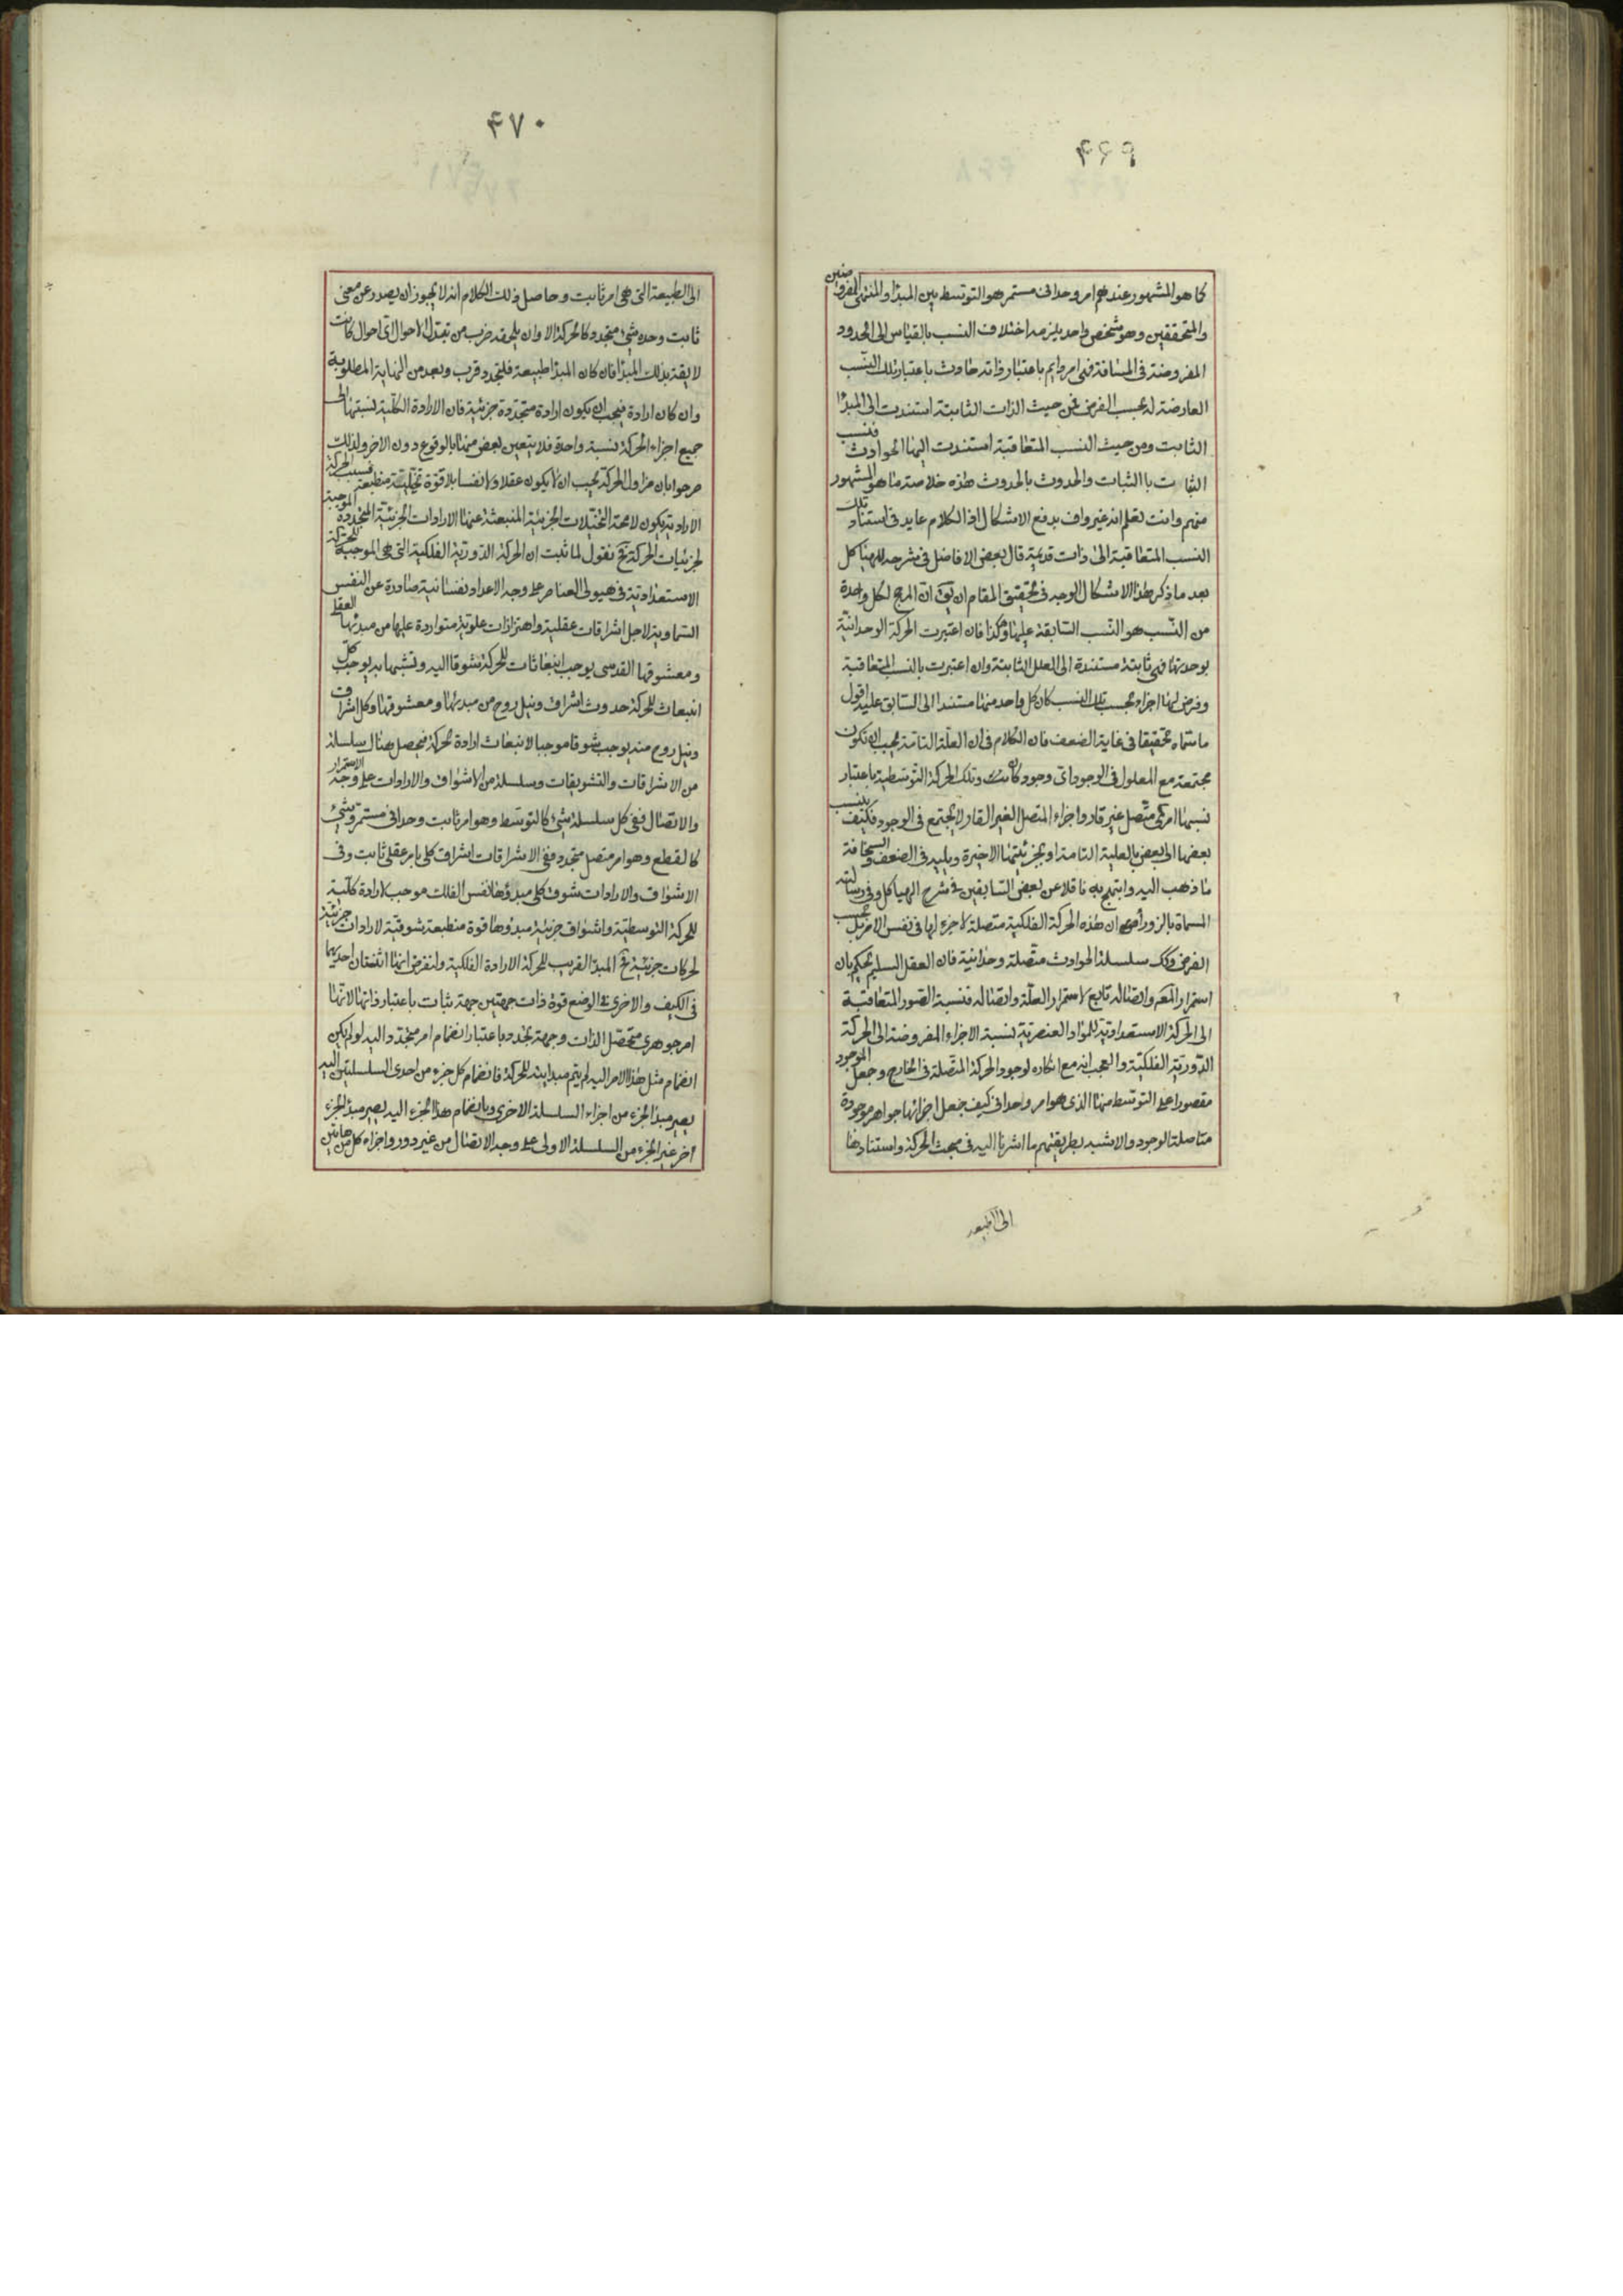 ۴۶۹
كما هو المشهور عندهم امر وحدانى مستمر هو التوسط بين المبدأ والمنتهى المفروضين
والمتحققين وهو شخص واحد يلزمه اختلاف النسب بالقياس الى الحدود
المفروضة فى المسافة فهى امر دايم باعتبار ذاته حادث باعتبار تلك النسب
العارضة له بحسب الفرض فمن حيث الذات الثابتة استندت الى المبدأ
الثابت ومن حيث النسب المتعاقبة استندت اليها الحوادث فنسب
الثابت با الثبات والحدوث بالحدوث هذه خلاصة ما هو المشهور
منهم وانت تعلم انه غير واف بدفع الاشكال اذ الكلام عايد فى استناد تلك
النسب المتعاقبة الى ذات قديمة قال بعض الافاضل فى شرحه للهياكل
بعد ما ذكر هذا الاشكال الوجه فى تحقيق المقام ان يق ان المرجح لكل واحدة
من النسب هو النسب السابقة عليها وهكذا فان اعتبرت الحركة الوحدانية
بوحدتها فهى ثابتة مستندة الى العلل الثابتة وان اعتبرت بالنسب المتعاقبة
وفرض لها اجزاء بحسب تلك النسب كان كل واحد منها مستندا الى السابق عليه اقول
ما سماه تحقيقا فى غاية الضعف فان الكلام فى ان العلة التامة يجب ان تكون
مجتمعة مع المعلول فى الوجود اى وجود كان وتلك الحركة التوسطية باعتبار
نسبها امر متصل غير قار واجزاء المتصل الغير القار لا تجتمع فى الوجود فكيف ينسب
بعضها الى بعض بالعلية التامة او بجزئيتها الاخيرة ويليه فى الضعف والسخافة
ما ذهب اليه وابتهج به ناقلا عن بعض السابقين فى شرح الهياكل وفى رسالته
المسماة بالزوراء من ان هذه الحركة الفلكية متصلة لا جزء لها فى نفس الامر بل بحسب
الفرض وكك سلسلة الحوادث متصلة وحدانية فان العقل السليم يحكم بان
استمرار المعلول واتصاله تابع لاستمرار العلة واتصاله فنسبة الصور المتعاقبة
الى الحركة الاستعدادية للمواد العنصرية كنسبة الاجزاء المفروضة الى الحركة
الدورية الفلكية والعجب انه مع انكاره لوجود الحركة المتصلة فى الخارج وجعل الموجود
مقصورا على التوسط منها الذى هو امر واحدانى كيف جعل اجزائها جواهر موجودة
متاصلة الوجود والاشبه بطريقتهم ما اشرنا اليه فى مبحث الحركة واستنادها
الى الطبيعة
۴۷۰
الى الطبيعة التى هى امر ثابت وحاصل ذلك الكلام انه لا يجوز ان يصدر عن معنى
ثابت وحده شىء متجدد كالحركة الا وان يلحقه ضرب من تبدل الاحوال اى احوال كانت
لايقة بذلك المبدأ فان كان المبدأ طبيعة فلتجدد قرب وبعد من النهاية المطلوبة
وان كان ارادة فيجب ان يكون ارادة متجددة جزئية فان الارادة الكلية نسبتها الى
جميع اجزاء الحركة نسبة واحدة فلا يتعين بعض منها بالوقوع دون الاخر ولذلك
صرحوا بان مزاول الحركة يجب ان لا يكون عقلا ولا نفسا بلا قوة تخيلية منطبعة فسبب الحركة
الارادية يكون لا محة التخيلات الجزئية المنبعثة عنها الارادات الجزئية المتجددة الموجبة
لجزئيات الحركة فح نقول لما ثبت ان الحركة الدورية الفلكية التى هى الموجبة للحركة
الاستعدادية فى هيولى العناصر على وجه الاعداد نفسانية صادرة عن النفس
السماوية لاجل اشراقات عقلية واهتزازات علوية متواردة عليها من مبدئها العقلى
ومعشوقها القدسى يوجب انبعاثات للحركة تشوقا اليه وتشبها به يوجب كل
انبعاث للحركة حدوث اشراق ونيل روح من مبدئها ومعشوقها وكل اشراق
ونيل روح منه يوجب شوقا موجبا لانبعاث ارادة لحركة فيحصل هناك سلسلة
من الاشراقات والتشويقات وسلسلة من الاشواق والارادات على وجه الاستمرار
والاتصال ففى كل سلسلة شىء كالتوسط وهو امر ثابت وحدانى مستمر وشىء
كالقطع وهو امر متصل متجدد ففى الاشراقات اشراق كلى بامر عقلى ثابت وفى
الاشواق والارادات شوق كلى مبدؤها نفس الفلك موجب لارادة كلية
للحركة التوسطية واشواق جزئية مبدؤها قوة منطبعة شوقية لارادات جزئية
لحركات جزئية ثم المبدأ القريب للحركة الارادة الفلكية ولنفرض انها اثنتان احديهما
فى الكيف والاخرى فى الوضع قوة ذات جهتين جهة ثبات باعتبار ذاتها لانها
امر جوهرى متحصل الذات وجهة تجدد باعتبار انضمام امر متجدد اليه لو لم يكن
انضمام مثل هذا الامر اليه لم يتم مبدايته للحركة فانضمام كل جزء من احدى السلسلتين اليه
يصير مبدأ لجزء من اجزاء السلسلة الاخرى وبانضمام هذا الجزء اليه يصير مبدأ لجزء
اخر غير الجزء من السلسلة الاولى على وجه الاتصال من غير دور واجزاء كل من هاتين